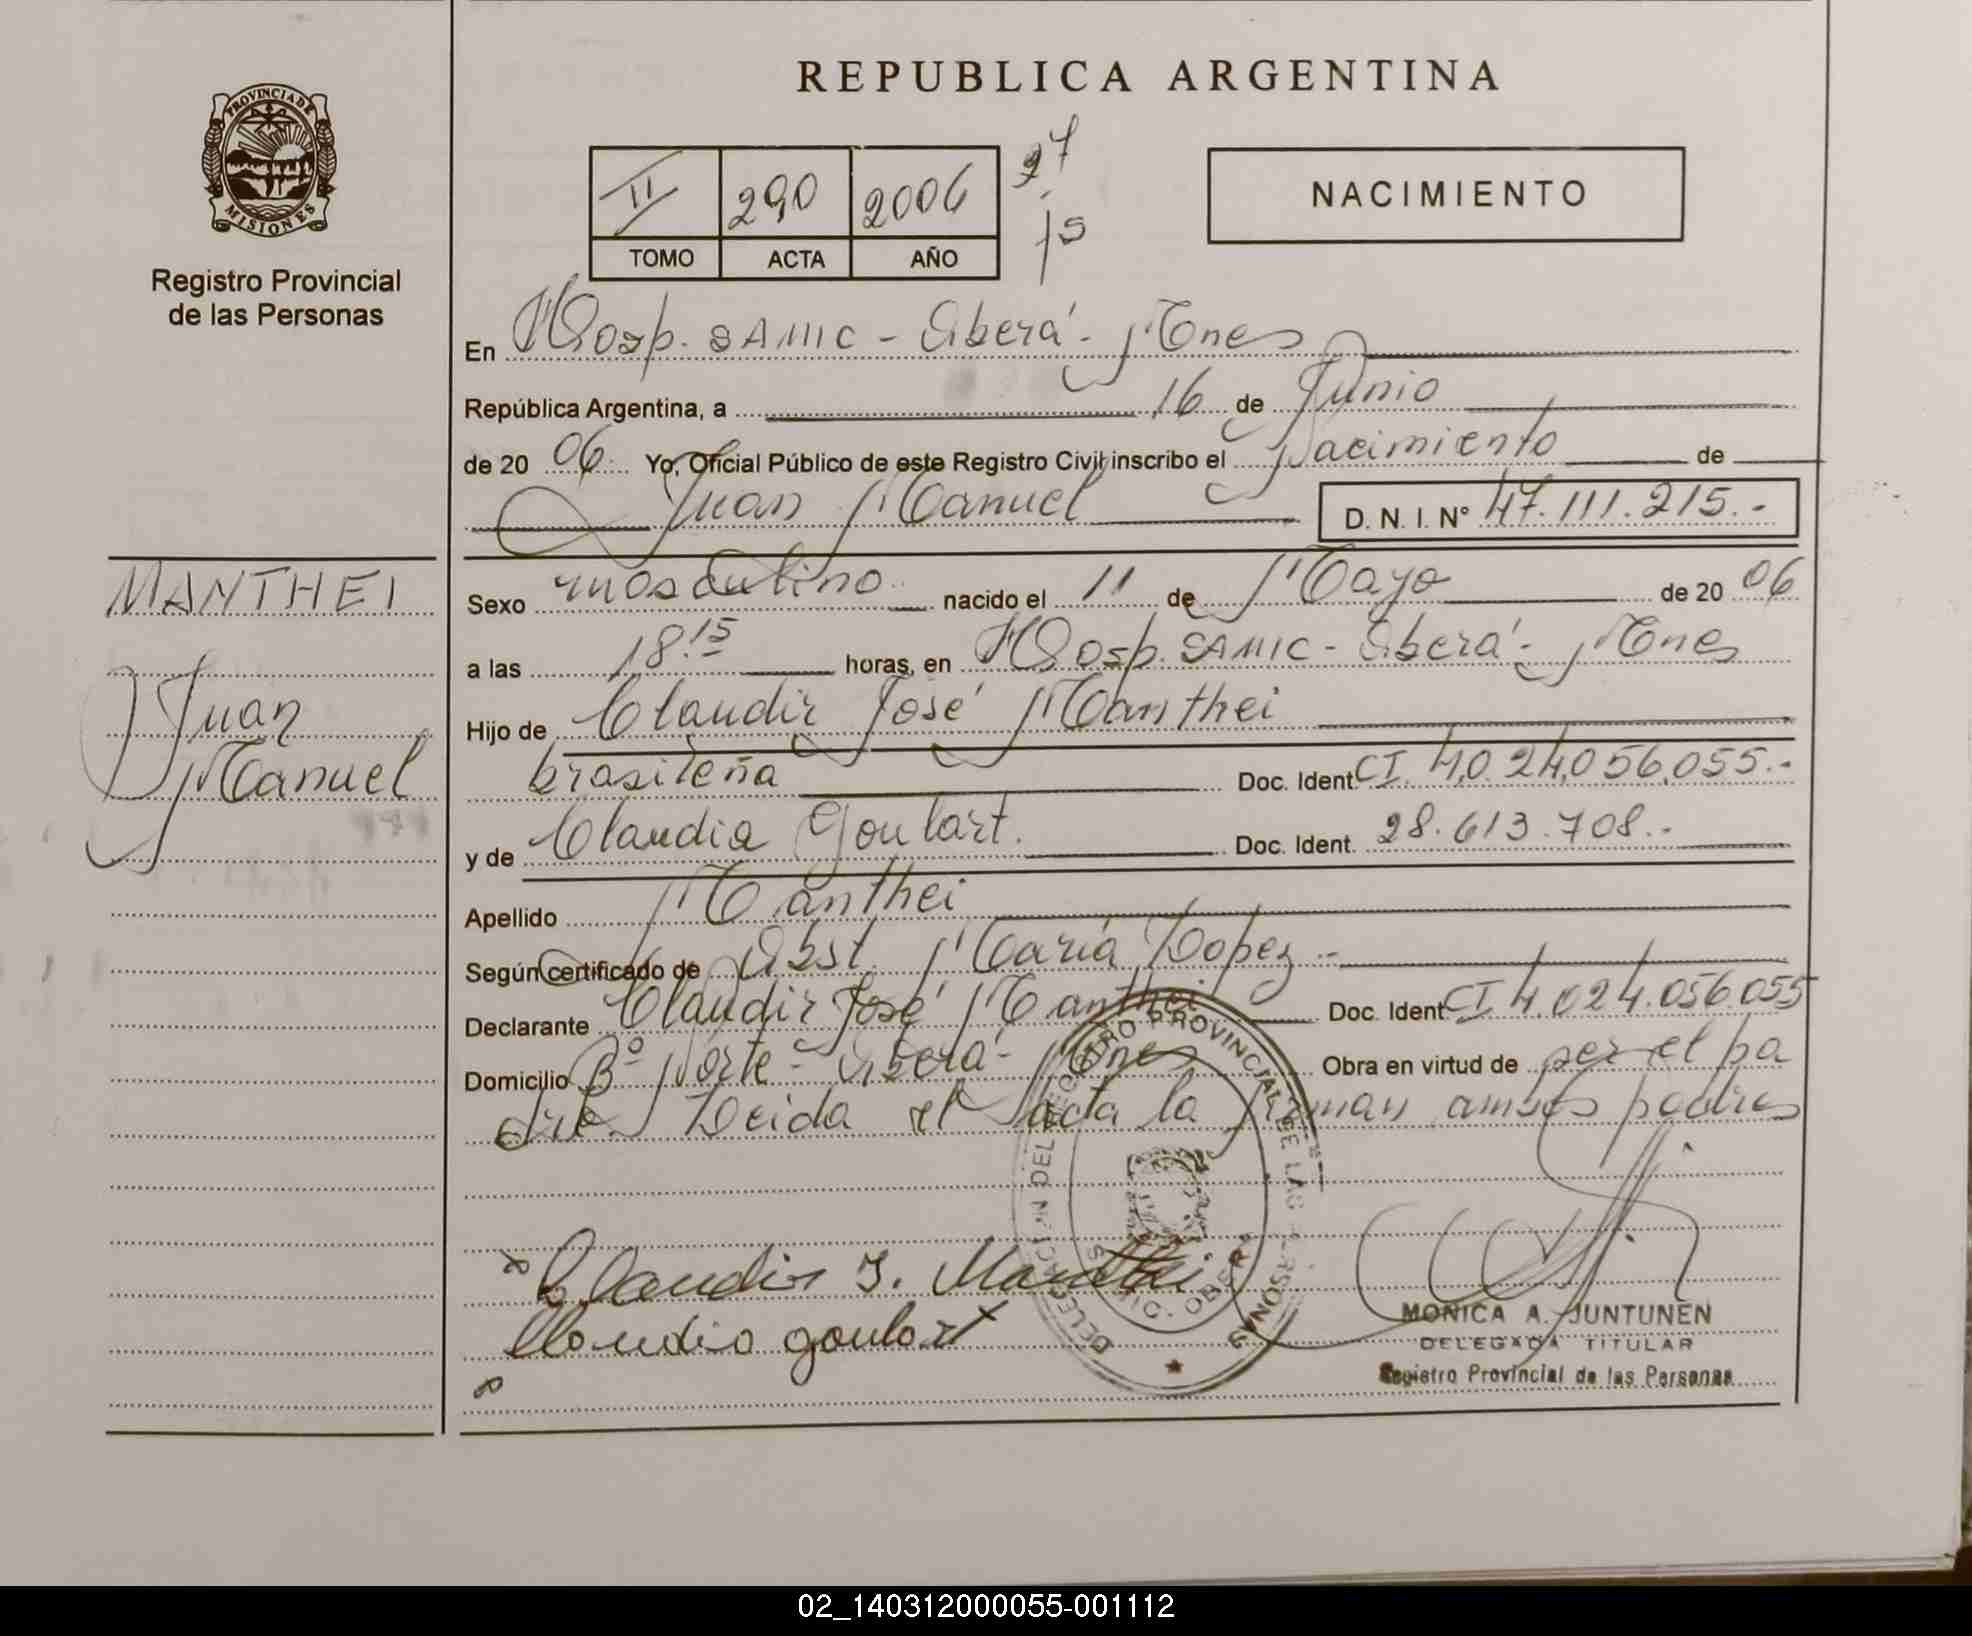 REPUBLICA ARGENTINA
PROVINCIA DE MISIONES
Registro Provincial
de las Personas
II 290 2006
TOMO ACTA AÑO
27
15
NACIMIENTO
En Hosp. SAMIC - Oberá - Mnes
República Argentina, a 16 de Junio
de 20 06 Yo, Oficial Público de este Registro Civil inscribo el Nacimiento de
Juan Manuel D. N. I. N° 47.111.215.-
MANTHEI
Juan
Manuel
Sexo masculino nacido el 11 de Mayo de 20 06
a las 18.15 horas, en Hosp. SAMIC - Oberá - Mnes
Hijo de Claudir José Manthei
brasileña Doc. Ident. CI. 4,024,056,055.-
y de Claudia Goulart. Doc. Ident. 28.613.708.-
Apellido Manthei
Según certificado de Obst. María Lopez.-
Declarante Claudir José Manthei Doc. Ident. CI 4.024.056.055
Domicilio B° Norte - Oberá - Mnes Obra en virtud de ser el pa
dre Leida el acta la firman ambos padres
Claudir J. Manthei
Claudia goulart
DELEGACION DEL REGISTRO PROVINCIAL DE LAS PERSONAS
OBERA
MONICA A. JUNTUNEN
DELEGADA TITULAR
Registro Provincial de las Personas
02_140312000055-001112